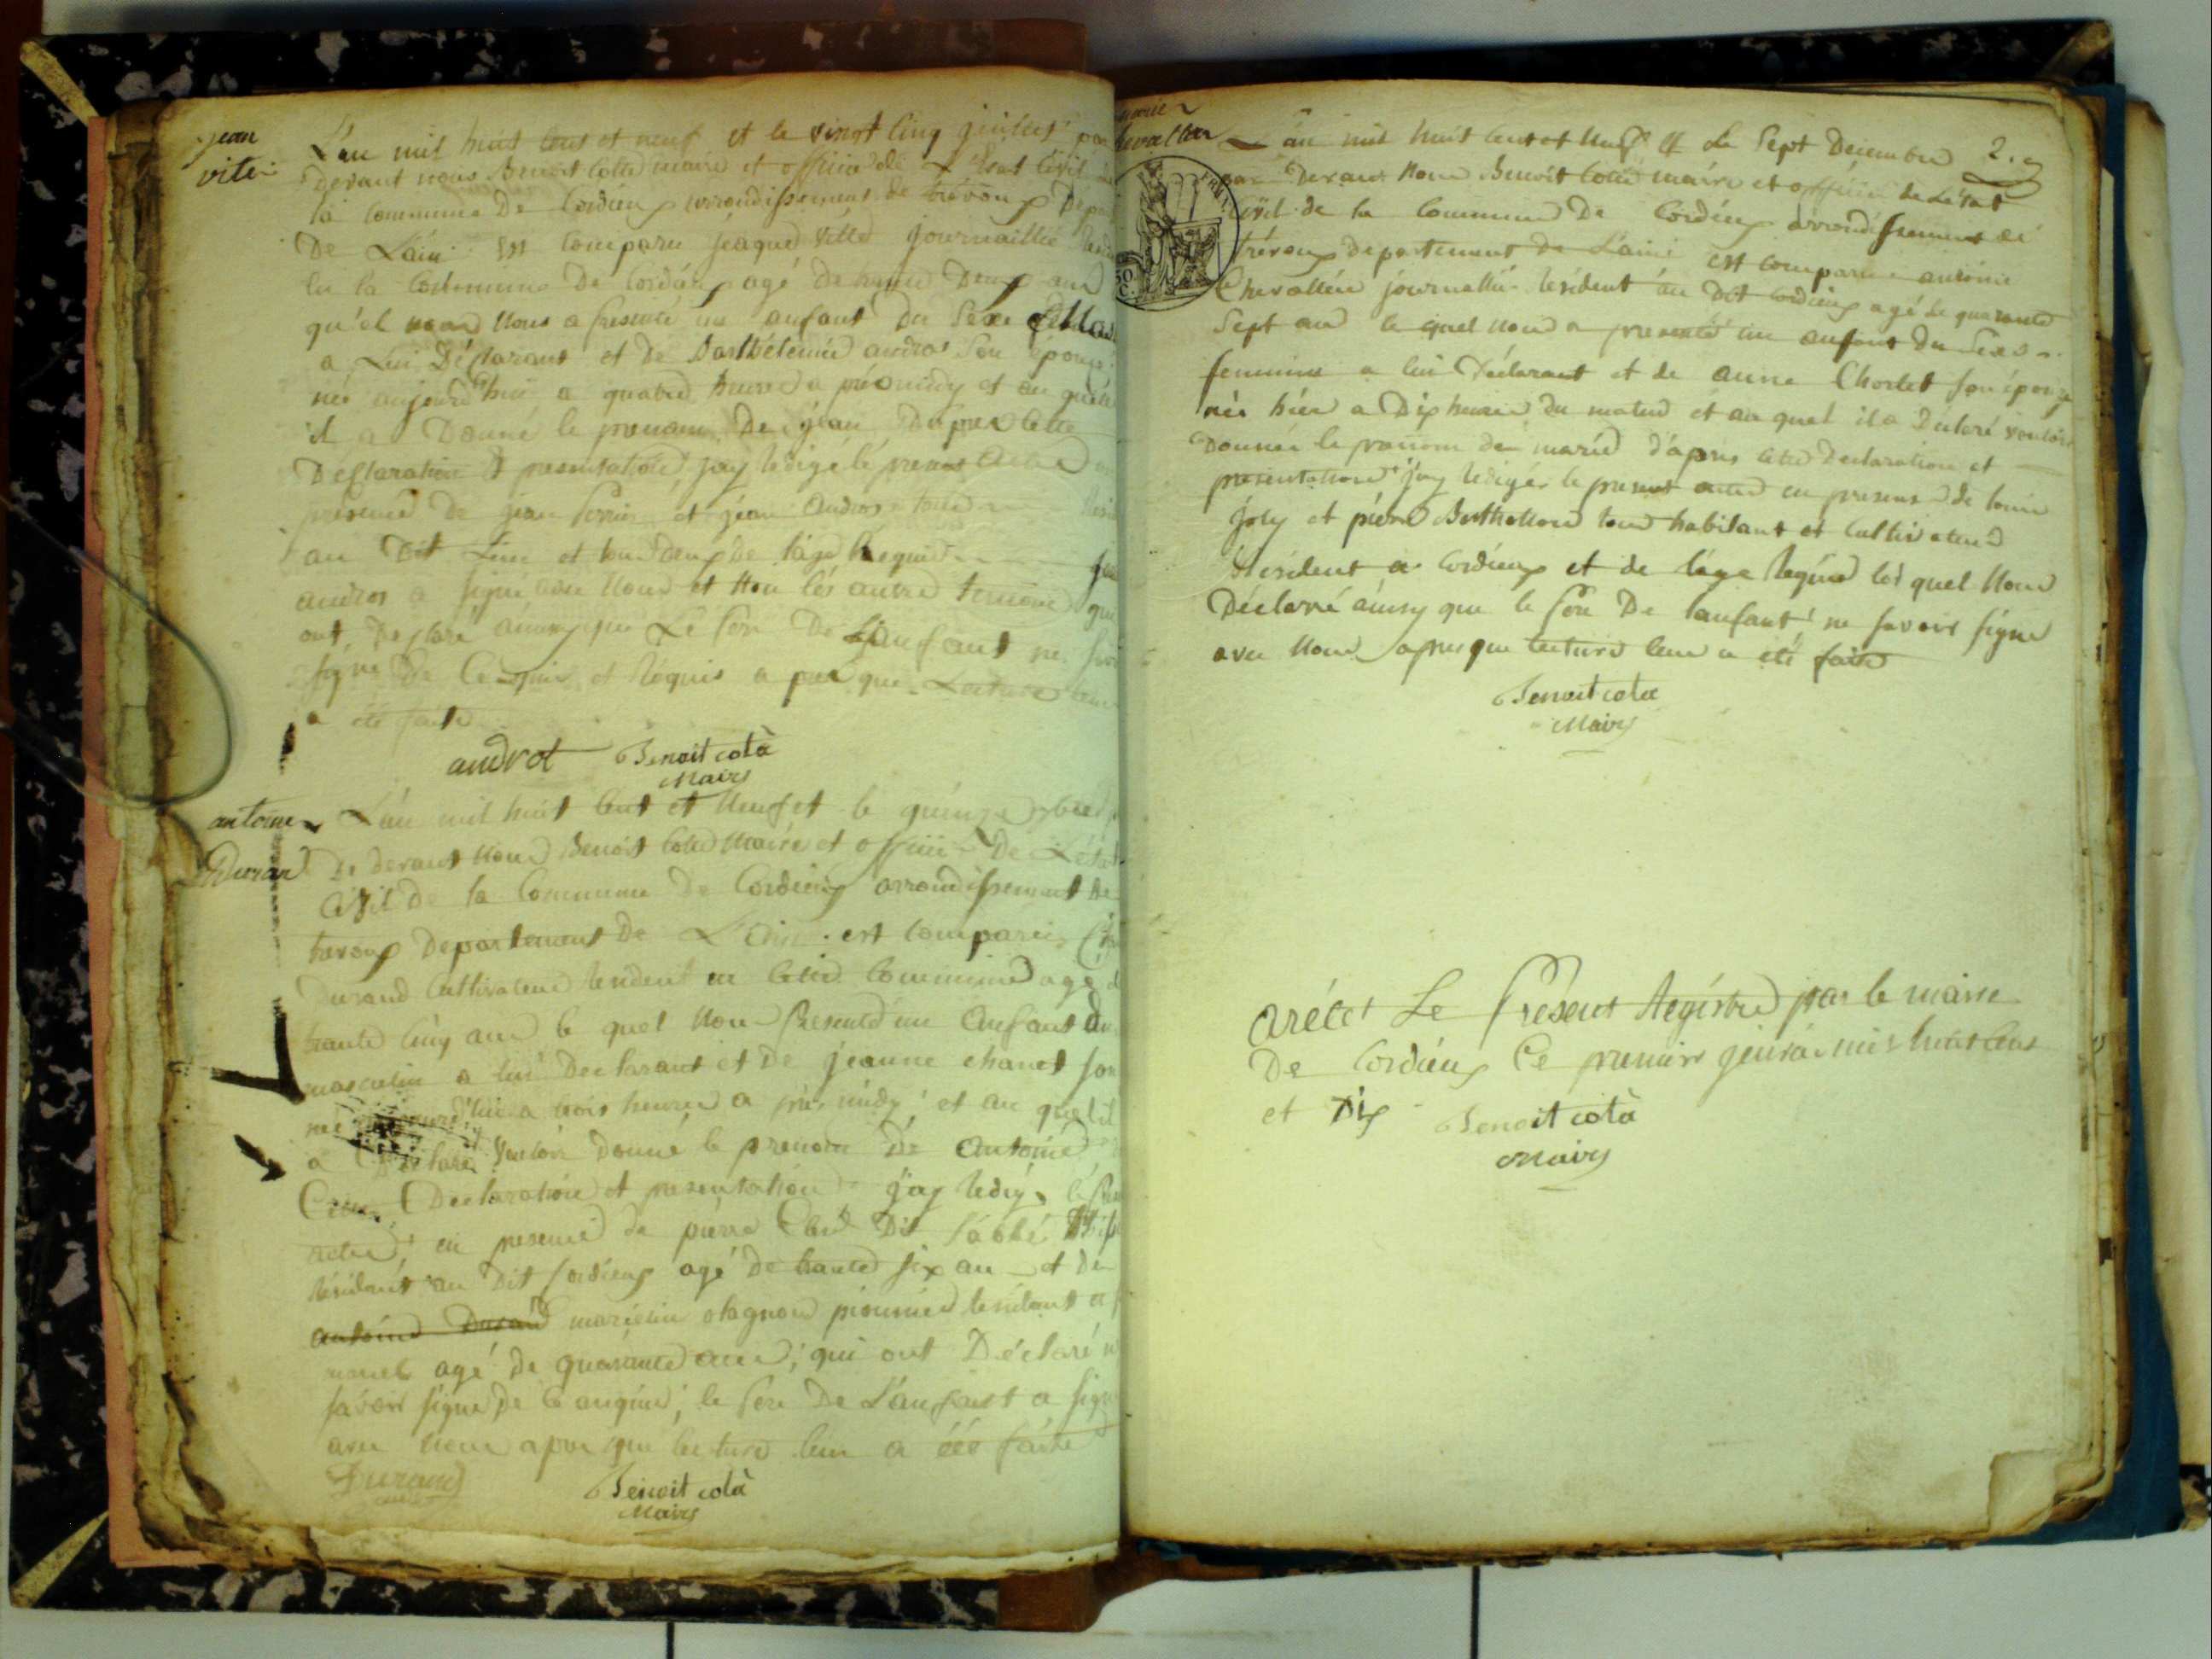 jean
vite
L'an mil huit cens et neuf et le vinst cinq juillet par
devant nous Benoit Cotta maire et officie de L'Etat Civil
la commune De Cordieux arrondissement de trevoux Dep
De L'ain est comparu jeaque vitte journaillie
en la Commune De Cordieux agé De trante Deux ans
qu'el nous a presenté un anfant Du Sexe
a Lui Déclarant et De Barthélémie andros Son épouse
née aujourd'hui a quatre heures a pré midy et au quel
il a Donné le prenom De jean Daprés cette
Déclaration et présentation jay redigé le present acte
présence De jean perrin et jean andros tous
au Dit Lieu et tous deux De läge Requis
andros a signé avec nous et non les autre temoins
ont Déclaré ainsy que Le pere De Lanfant ne
signe De Ce et Réquis a pres que Lecture leur
a été faite
androt Benoit cotà
Maire
antoine
Duran
L'an mil huit cent et neuf et le quinze 9bre
De devant nous Benoit Cotta Maire et officie De L'état
Civil De la Commune De Cordieux arrondissement De
trevoux Departement De L'ain est comparu
Durand Cultivateur resident en cette Commune agé
trante cinq ans le quel nous presente un anfant du
masculin a lui Declarant et De jeanne chanet son
né aujourd'hui a trois heures a pres midy et au quel il
a Déclaré vouloir Donné le prenom De antoine
Cette Declaration et presentation j'ay redigé le
acte en presence de pierre Dit
résidant au Dit Cordieux agé De trante six an et De
antoine Durand marcelin olagnon pionnier resident a
agé de quarante ans; qui ont Déclaré n
savoir signe De ce anquis; le pere De L'anfant a signe
avec nous apres que lecture leur a été faite
Durand Benoit cotà
Maire
marie
chevallier
2.
L'an mil huit cent et neuf et le Sept Decembre
par Devant nous Benoit Cotta maire et officie de L'état
civil de la Commune De Cordieux arrondissement de
trévoux departement de L'ain est comparu antoine
Chevallier journallié résident au Dit Cordieux agé de quarante
Sept ans le quel nous a presenté un anfant du Sexe
feminin a lui Déclarant et de anne Chortet son épouze
née hier a Dix heures du matin et au quel il a Déclaré vouloir
Donner le prenom de marie d'après cette Declaration et
presentation j'ay redigér le present acte en presens de
joly et piérre Berthollon tous habitant et Cultivateurs
Résident a Cordieux et de läge Réquis les quel nous
Déclaré ainsy que le pere De lanfant ne savoir signe
avec nous apres que lecture leur a été faite
Benoit cotà
Maire
aréter Le présent Régistre par le maire
De Cordieux Ce premier jenvié mil huit cens
et Dix
Benoit cotà
Maire